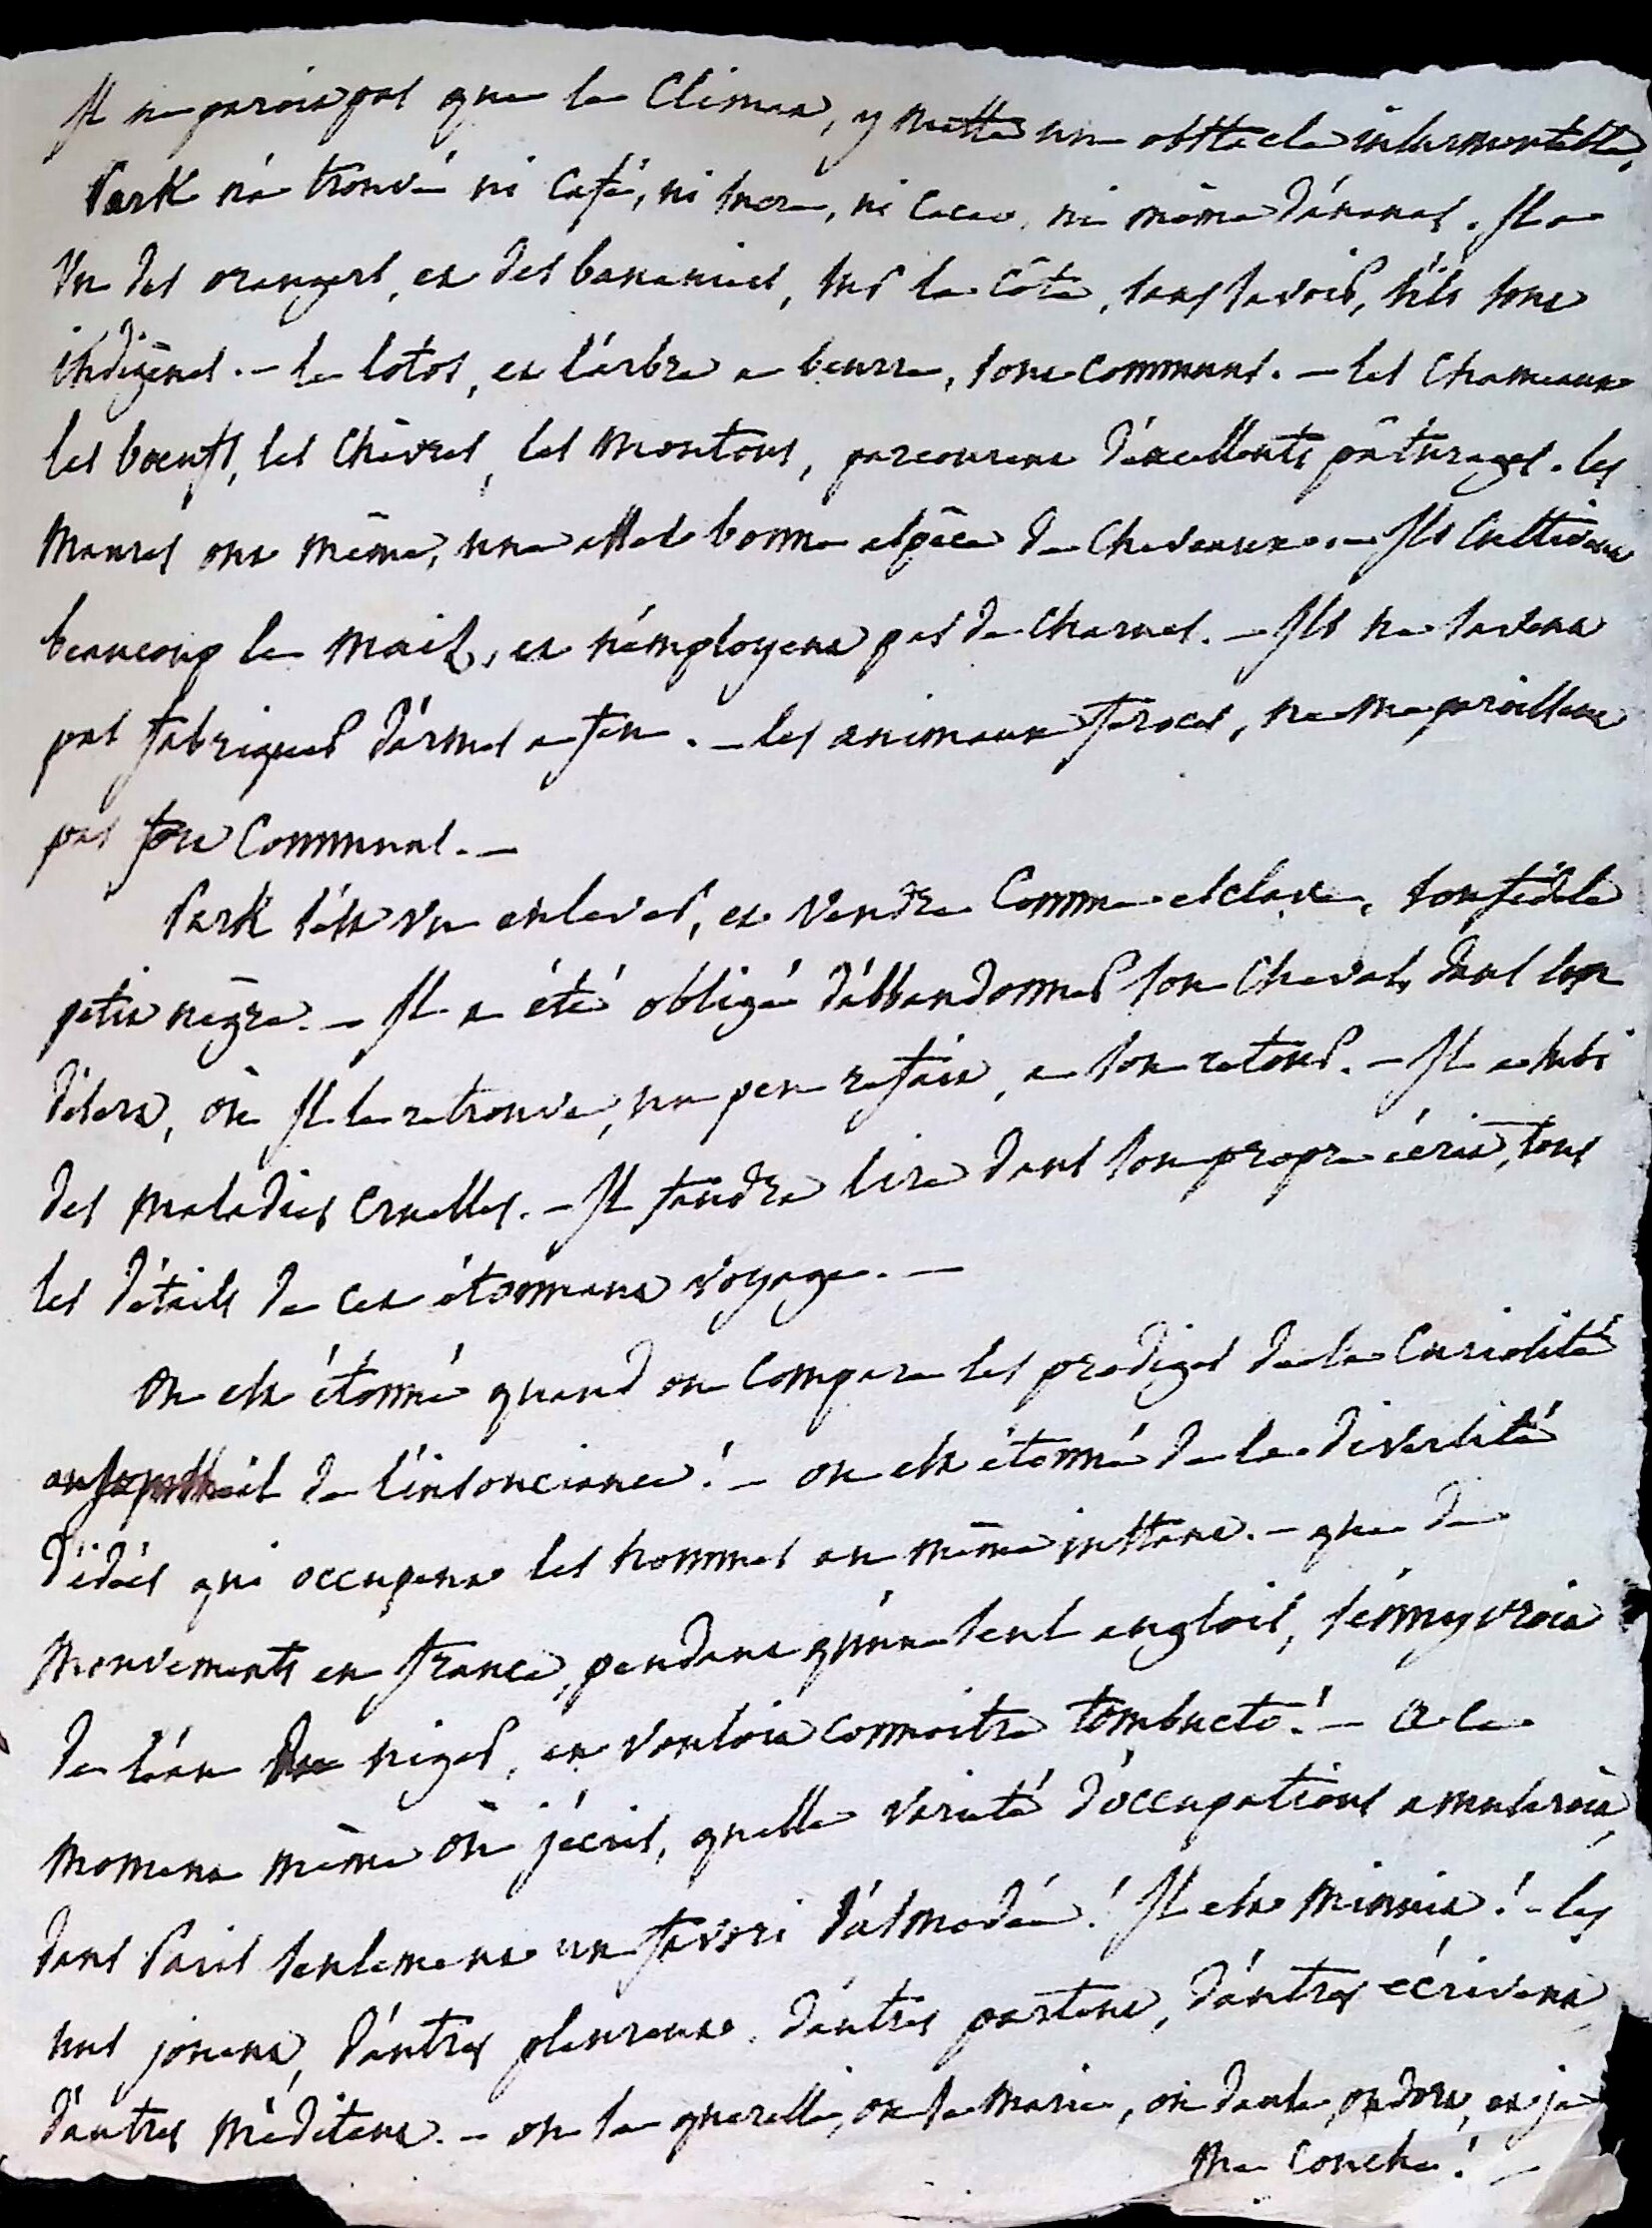 Il ne parois pas que le Climat, y mette un obstacle insurmontable,
Park n'a trouvé ni Café, ni sucre, ni Cacao, ni même d'ananas. Il a
vu des orangers, et des bananiers, sur la Côte, sans savoir, s'ils sont
indigènes. – le lotos, et l'arbre a beurre, sont communs. – les Chameaux
les boeufs, les Chèvres, les moutons, parcourent d'excellents pâturages. les
Maures ont même, une assez bonne espèce de Chevaux. – Ils Cultivent
beaucoup le maïs, et n'employent pas de Charues. – Ils ne savent
pas fabriquer d'armes a feu. – les animaux feroces, ne me paroissent
pas fort Communs. –
Park s'est vu enlever, et vendre Comme esclave, son fidèle
petit nègre. – Il a été obligé d'abbandonner son Cheval, dans
désert, où Il le retrouve, un peu refait, a son retour. – Il a subi
des maladies Cruelles. – Il faudra lire dans son propre écrit, tous
les détails de cet étonnant voyage. –
On est étonné quand on Compare les prodiges de la Curiosité
de l'insouciance! – on est étonné de la diversité
d'idées qui occupent les hommes au même instant. – que de
Mouvements en france, pendant qu'un seul anglois, s'ennyvroit
de l'eau du niger, et vouloit connoitre tombucto! – a le
moment même où j'écris, quelle varieté d'occupations amuseroit,
dans Paris seulement un favori d'asmodée! Il est minuit! – les
uns jouent, d'autres pleurent, d'autres partent, d'autres écrivent,
d'autres méditent. – on se querelle, on se marie, on danse, on dort, et je
me Couche! –